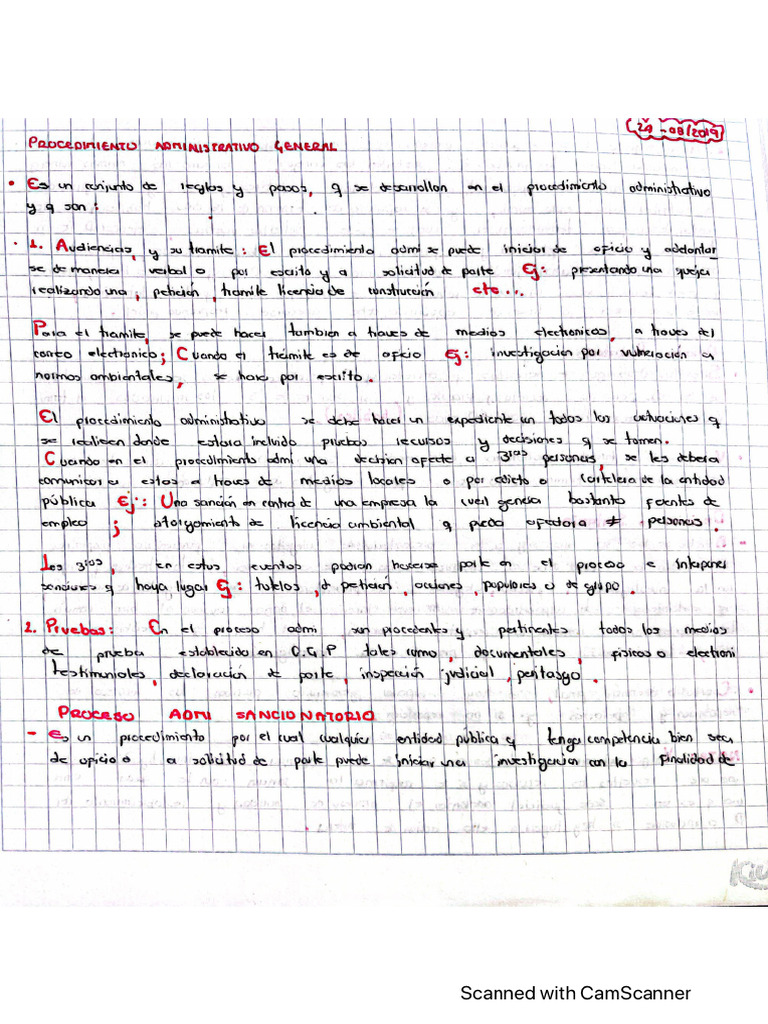 24-08/2019
PROCEDIMIENTO ADMINISTRATIVO GENERAL
• Es un conjunto de reglas y pasos, q se desarrollan en el procedimiento administrativo
y q son:
• 1. Audiencias, y su tramite: El procedimiento admi se puede iniciar de oficio y adelantar
se de manera verbal o por escrito y a solicitud de parte Ej: presentando una queja
realizando una, petición, tramite licencia de construcción etc...
Para el tramite, se puede hacer tambien a traves de medios electronicos, a traves del
correo electronico; Cuando el trámite es de oficio Ej: investigación por vulneración a
normas ambientales, se hara por escrito.
El procedimiento administrativo se debe hacer un expediente un todos las actuaciones q
se realicen donde estara incluido pruebas recursos y decisiones q se tomen.
Cuando en el procedimiento admi una decision afecte a 3ras personas, se les debera
comunicar a estos a traves de medios locales o por edicto o cartelera de la entidad
pública Ej: Una sanción en contra de una empresa la cual genera bastante fuentes de
empleo; otorgamiento de licencia ambiental q pueda afectar a ≠ personas.
Los 3ros, en estos eventos podran hacerse parte en el proceso e interponer
sanciones q haya lugar Ej: tutelas, d petición, acciones, populares o de grupo.
2. Pruebas: En el proceso admi son procedentes y pertinentes todos los medios
de prueba establecido en C.G.P tales como, documentales, fisicos o electroni
testimoniales, declaración de parte, inspección judicial, peritasgo.
PROCESO ADMI SANCIONATORIO
- Es un procedimiento por el cual cualquier entidad pública q tenga competencia bien sea
de oficio o a solicitud de parte puede iniciar una investigación con la finalidad de
Kiu
Scanned with CamScanner